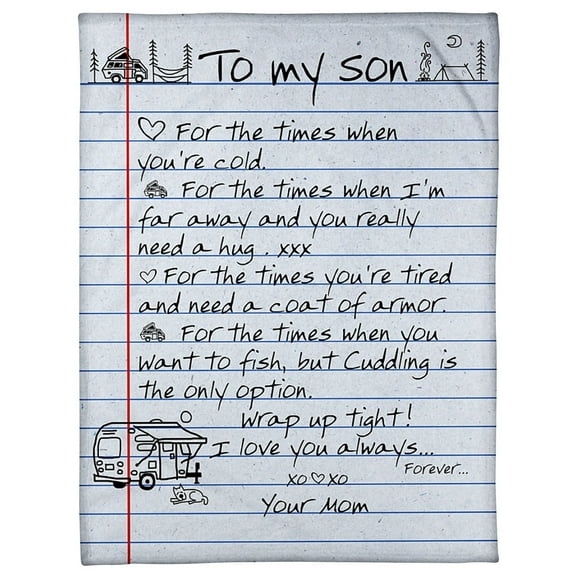 To my son
♡ For the times when
you're cold.
For the times when I'm
far away and you really
need a hug . xxx
♡ For the times you're tired
and need a coat of armor.
For the times when you
want to fish, but Cuddling is
the only option.
Wrap up tight!
I love you always...
Forever...
xo♡xo
Your Mom